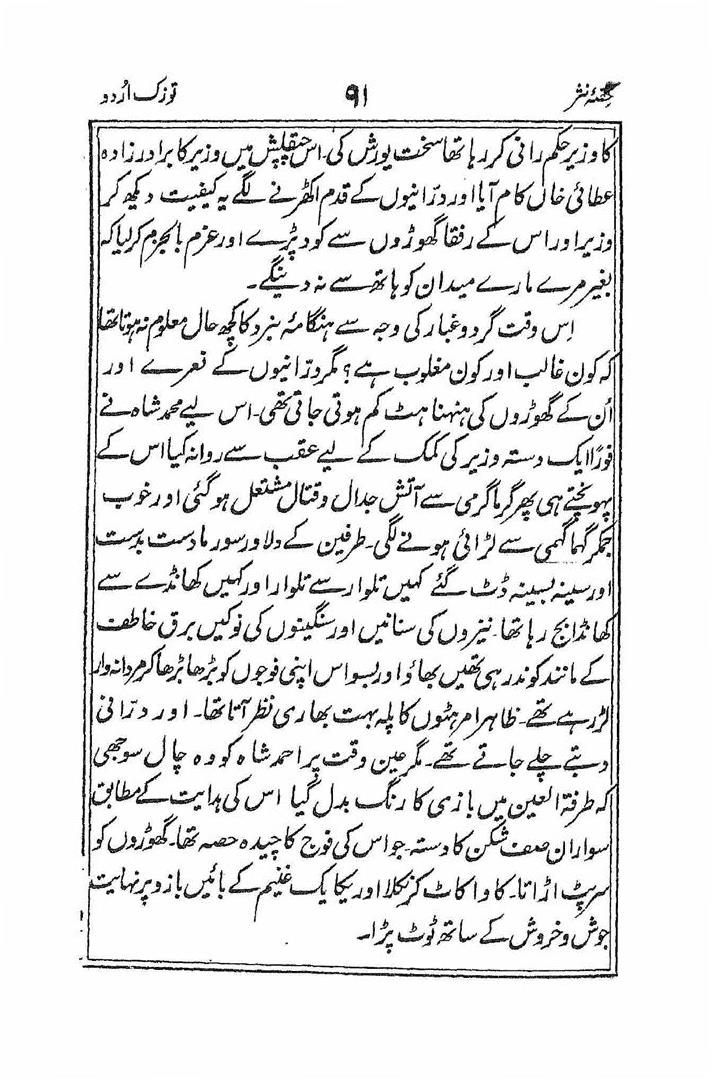 حصۂ نثر ۹۱ توزک اُردو
کا وزیر حکم رانی کر رہا تھا سخت یورش کی۔ اس چپقلش میں وزیر کا برادر زادہ
عطائی خاں کام آیا اور درّانیوں کے قدم اکھڑنے لگے یہ کیفیت دیکھ کر
وزیر اور اس کے رفقا گھوڑوں سے کود پڑے اور عزم بالجزم کر لیا کہ
بغیر مرے مارے میدان کو ہاتھ سے نہ دینگے۔
اِس وقت گرد و غبار کی وجہ سے ہنگامۂ نبرد کا کچھ حال معلوم نہ ہوتا تھا
کہ کون غالب اور کون مغلوب ہے؟ مگر درّانیوں کے نعرے اور
اُن کے گھوڑوں کی ہنہناہٹ کم ہوتی جاتی تھی۔ اس لیے محمد شاہ نے
فوراً ایک دستہ وزیر کی کمک کے لیے عقب سے روانہ کیا اس کے
پہونچتے ہی پھر گرما گرمی سے آتش جدال و قتال مشتعل ہو گئی اور خوب
جمکر گہما گہمی سے لڑائی ہونے لگی۔ طرفین کے دلاور سورما دست بدست
اور سینہ بسینہ ڈٹ گئے کہیں تلوار سے تلوار اور کہیں کھانڈے سے
کھانڈا بج رہا تھا۔ نیزوں کی سنانیں اور سنگینوں کی نوکیں برق خاطف
کے مانند کوند رہی تھیں بھاؤ اور بسواس اپنی فوجوں کو بڑھا بڑھا کر مردانہ وار
لڑ رہے تھے۔ ظاہرا مرہٹوں کا پلہ بہت بھاری نظر آتا تھا۔ اور درّانی
دبتے چلے جاتے تھے۔ مگر عین وقت پر احمد شاہ کو وہ چال سوجھی
کہ طرفۃ العین میں بازی کا رنگ بدل گیا اس کی ہدایت کے مطابق
سواران صف شکن کا دستہ۔ جو اس کی فوج کا چیدہ حصہ تھا۔ گھوڑوں کو
سرپٹ اڑاتا۔ کاوا کاٹ کر نکلا اور یکایک غنیم کے بائیں بازو پر نہایت
جوش و خروش کے ساتھ ٹوٹ پڑا۔